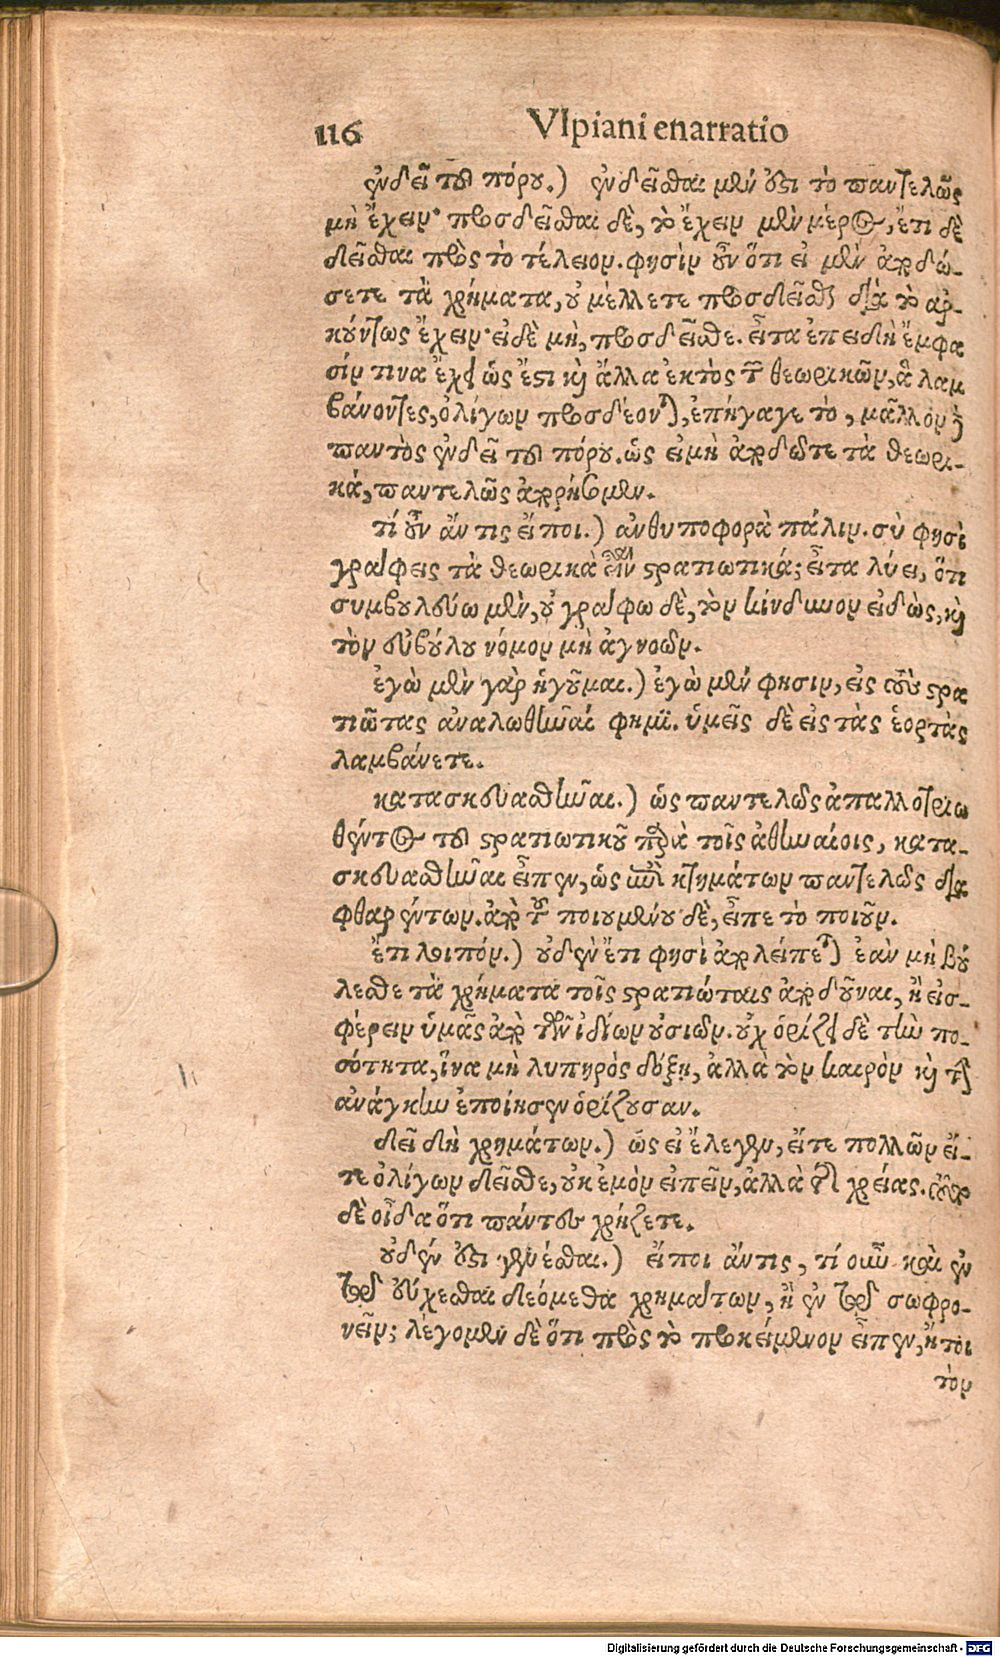 116 Vlpiani enarratio
ἐνδεῖ τοῦ πόρου.) ἐνδεῖσθαι μέν ὅστι τὸ παντελῶς
μὴ ἔχειν· προσδεῖσθαι δὲ, τὸ ἔχειν μὲν μέρος, ἔτι δὲ
δεῖσθαι πρὸς τὸ τέλειον. φησὶν οὖν ὅτι εἰ μὲν ἀποδώ-
σετε τὰ χρήματα, οὐ μέλλετε προσδεῖσθαι διὰ τὸ ἀρ-
κούντως ἔχειν· εἰ δὲ μὴ, προσδεῖσθε. εἶτα ἐπειδὴ ἔμφα
σίν τινα ἔχει ὡς ἔστι καὶ ἄλλα ἐκτὸς τῶν θεωρικῶν, ἃ λαμ
βάνοντες, ὀλίγων προσδέονται, ἐπήγαγε τὸ, μᾶλλον δ
παντὸς ἐνδεῖ τοῦ πόρου. ὡς εἰ μὴ ἀποδῶτε τὰ θεωρι-
κὰ, παντελῶς ἀπορήσομεν.
τί οὖν ἄν τις εἴποι.) ἀνθυποφορὰ πάλιν. σὺ φησὶ
γράφεις τὰ θεωρικὰ εἶναι στρατιωτικά; εἶτα λύει, ὅτι
συμβουλεύω μὲν, οὐ γράφω δὲ, τὸν κίνδυνον εἰδὼς, καὶ
τὸν εὐβούλου νόμον μὴ ἀγνοῶν.
ἐγὼ μὲν γὰρ ἡγοῦμαι.) ἐγὼ μέν φησιν, εἰς τοὺς στρα
τιώτας ἀναλωθῆναί φημι. ὑμεῖς δὲ εἰς τὰς ἑορτὰς
λαμβάνετε.
κατασκευασθῆναι.) ὡς παντελῶς ἀπαλλοτριω
θέντος τοῦ στρατιωτικοῦ παρὰ τοῖς ἀθηναίοις, κατα-
σκευασθῆναι εἶπεν, ὡς ἐπὶ κτημάτων παντελῶς δια
φθαρέντων. ἀπὸ τοῦ ποιουμένου δὲ, εἶπε τὸ ποιοῦν.
ἔτι λοιπόν.) οὐδὲν ἔτι φησὶ ἀπολείπεται ἐὰν μὴ βού
λεσθε τὰ χρήματα τοῖς στρατιώταις ἀποδοῦναι, ἢ εἰσ-
φέρειν ὑμᾶς ἀπὸ τῶν ἰδίων οὐσιῶν. οὐχ ὁρίζει δὲ τὴν πο-
σότητα, ἵνα μὴ λυπηρὸς δόξῃ, ἀλλὰ τὸν καιρὸν καὶ τὴν
ἀνάγκην ἐποίησεν ὁρίζουσαν.
δεῖ δὴ χρημάτων.) ὡς εἰ ἔλεγεν, εἴτε πολλῶν εἴ-
τε ὀλίγων δεῖσθε, οὐκ ἐμὸν εἰπεῖν, ἀλλὰ τῆς χρείας.
δὲ οἶδα ὅτι πάντως χρῄζετε.
οὐδέν ὅστι γενέσθαι.) εἴποι ἄν τις, τί οὖν καὶ ἐν
τῷ εὔχεσθαι δεόμεθα χρημάτων, ἢ ἐν τῷ σωφρο-
νεῖν; λέγομεν δὲ ὅτι πρὸς τὸ προκείμενον εἶπεν, ἤτοι
τὸν
Digitalisierung gefördert durch die Deutsche Forschungsgemeinschaft - DFG